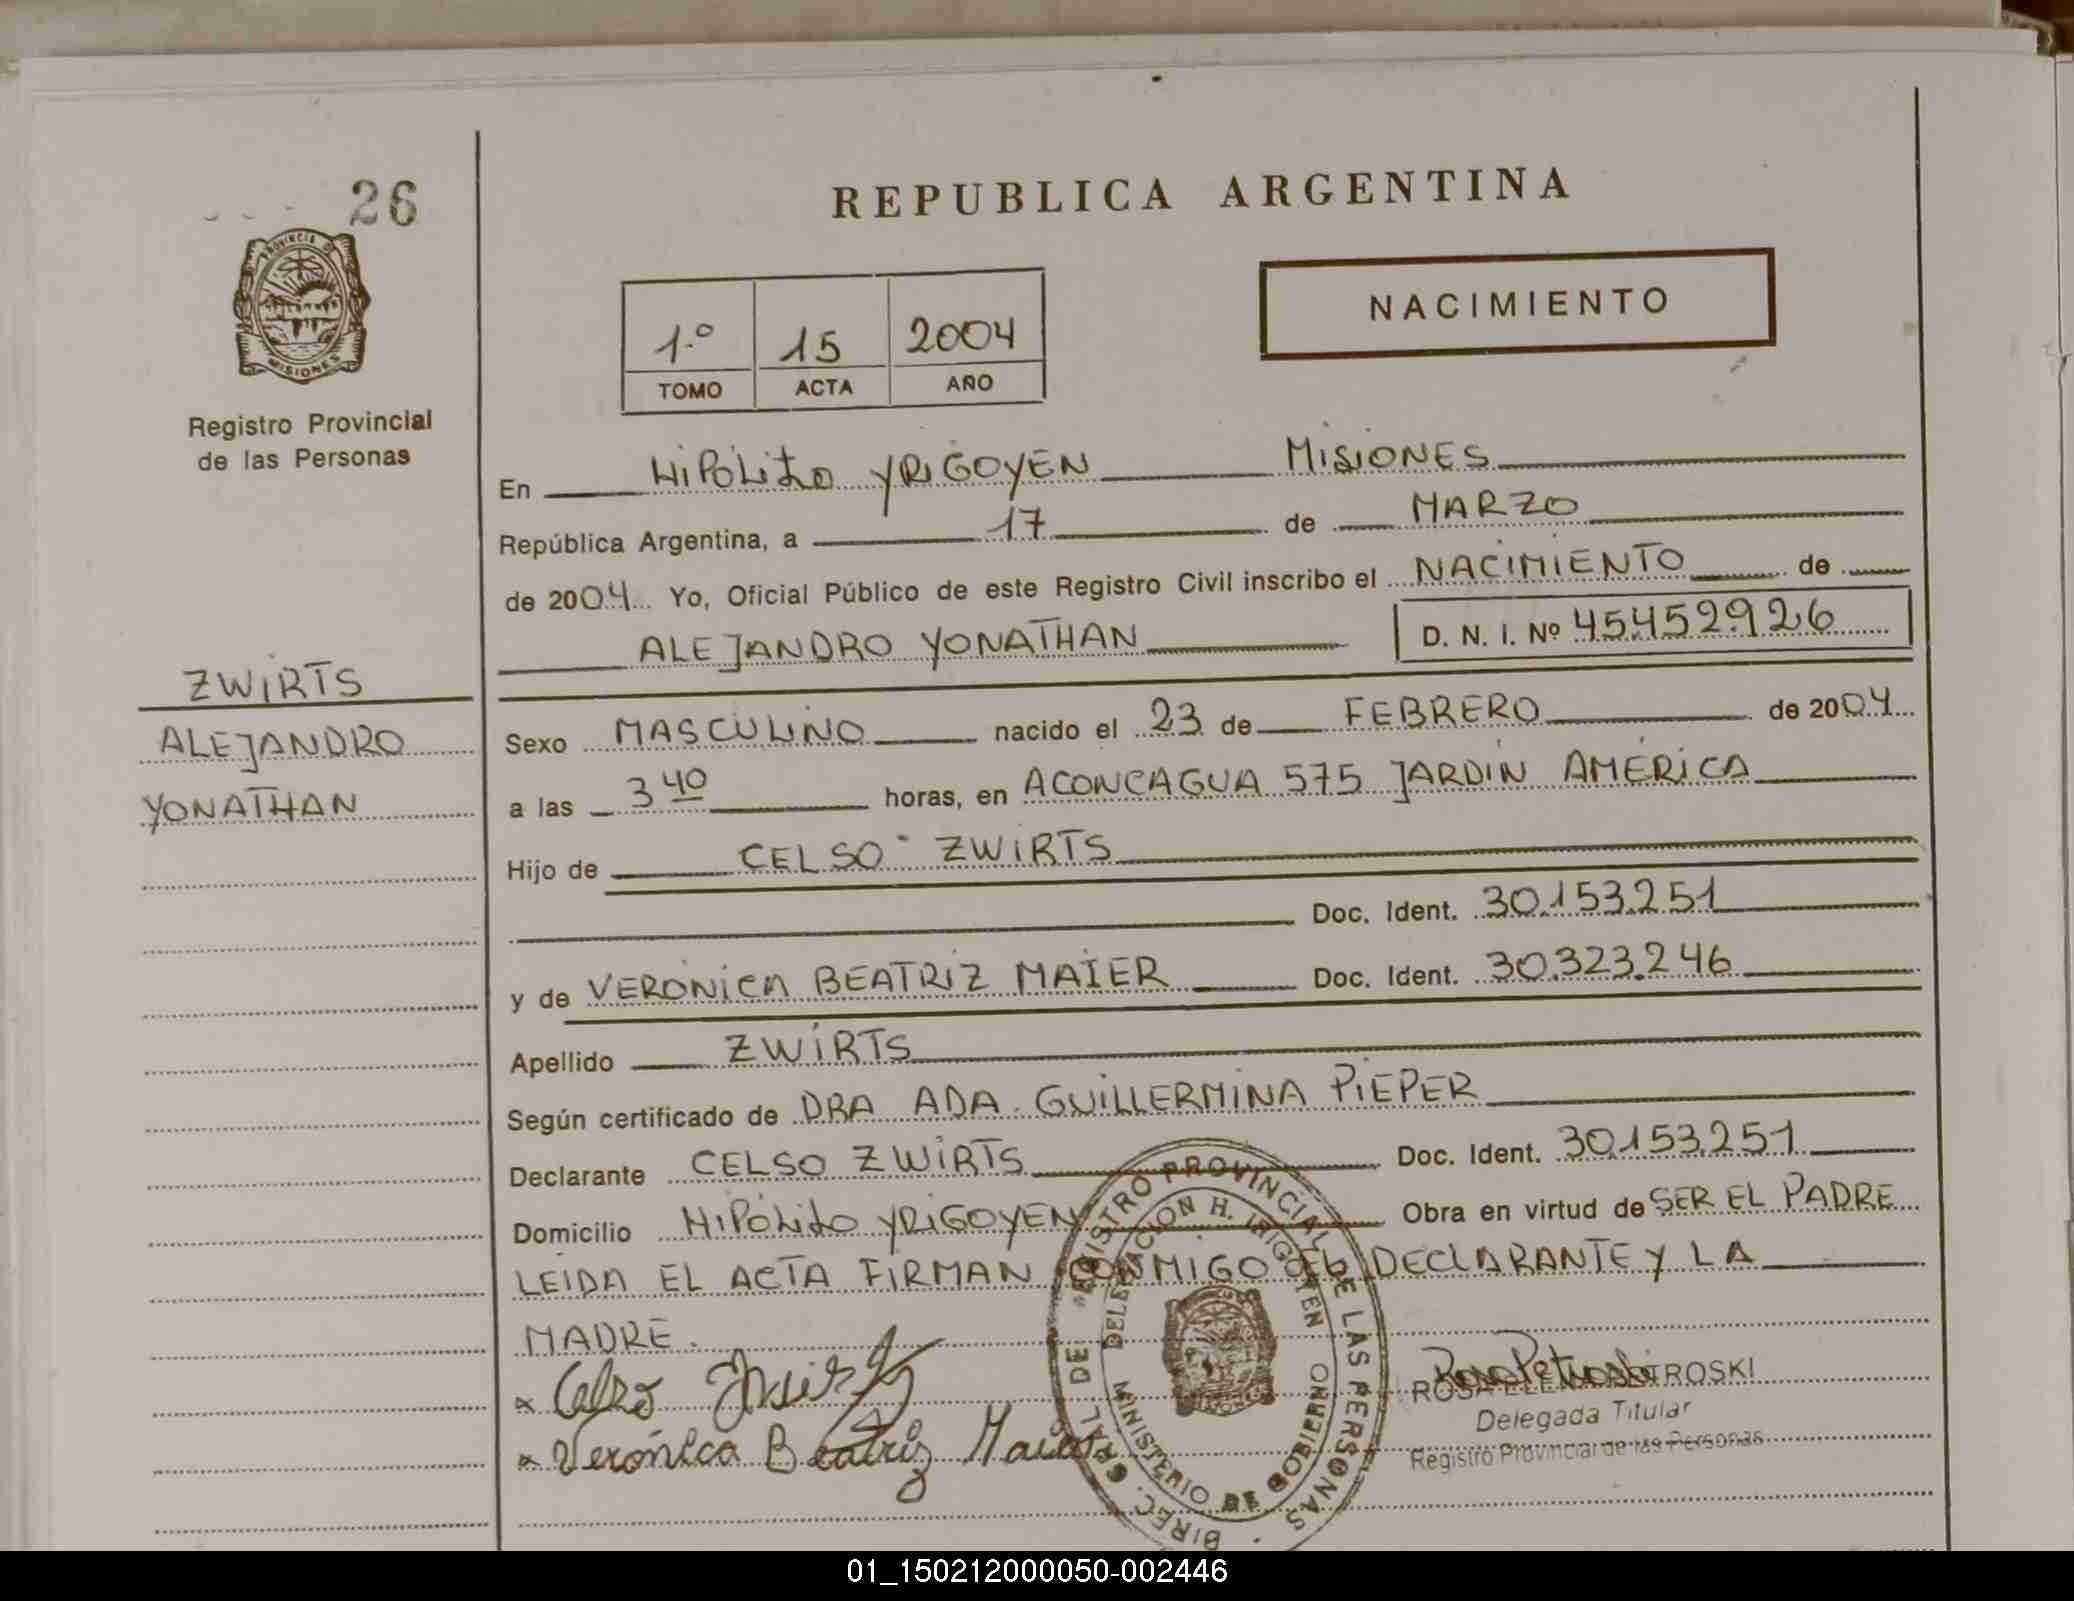 26
PROVINCIA DE
MISIONES
Registro Provincial
de las Personas
REPUBLICA ARGENTINA
NACIMIENTO
1.º 15 2004
TOMO ACTA AÑO
En HIPÓLITO YRIGOYEN MISIONES
República Argentina, a 17 de MARZO
de 2004 Yo, Oficial Público de este Registro Civil inscribo el NACIMIENTO de
ALEJANDRO YONATHAN D. N. I. Nº 45.452.926
ZWIRTS
ALEJANDRO
YONATHAN
Sexo MASCULINO nacido el 23 de FEBRERO de 2004
a las 3 40 horas, en ACONCAGUA 575 JARDIN AMÉRICA
Hijo de CELSO ZWIRTS
Doc. Ident. 30.153.251
y de VERÓNICA BEATRIZ MAIER Doc. Ident. 30.323.246
Apellido ZWIRTS
Según certificado de DRA ADA GUILLERMINA PIEPER
Declarante CELSO ZWIRTS Doc. Ident. 30.153.251
Domicilio HIPÓLITO YRIGOYEN Obra en virtud de SER EL PADRE
LEIDA EL ACTA FIRMAN CONMIGO EL DECLARANTE Y LA
MADRE.
Celso Zwirts
Verónica Beatriz Maier
DIREC. GRAL. DE REGISTRO PROVINCIAL DE LAS PERSONAS
DELEGACION H. IRIGOYEN
MINISTERIO DE GOBIERNO
ROSA ELENA PETROSKI
Delegada Titular
Registro Provincial de las Personas
01_150212000050-002446